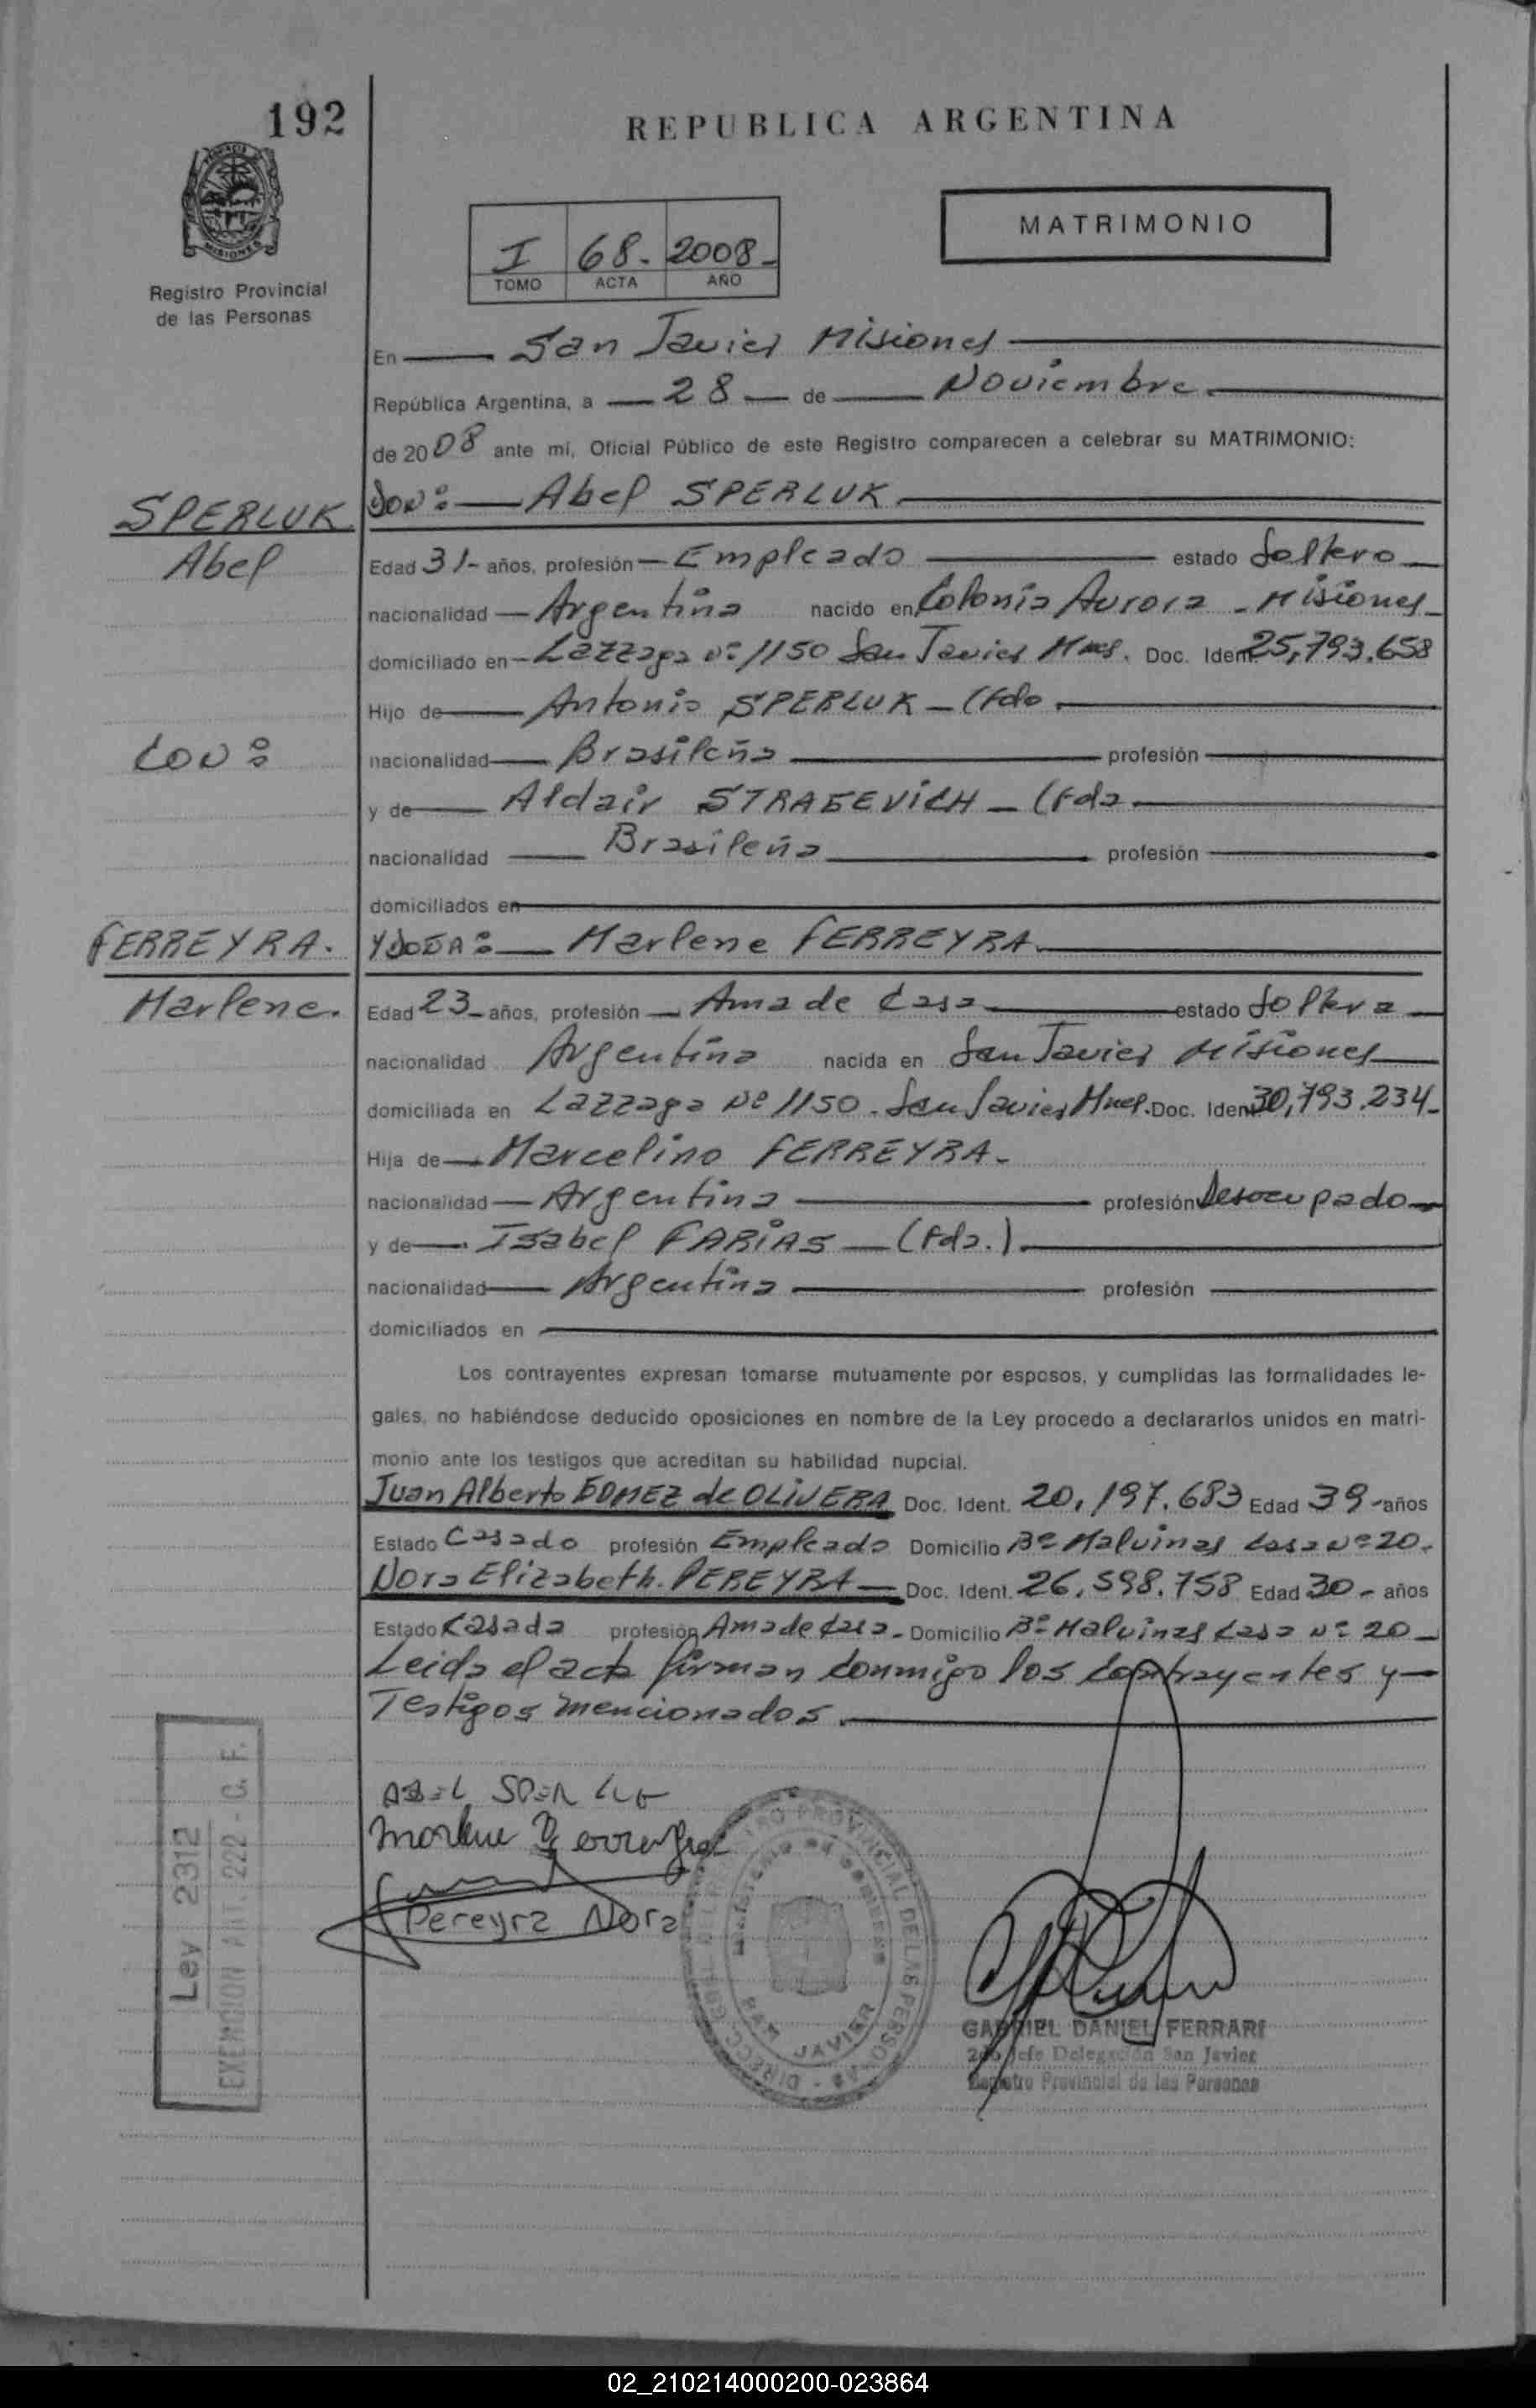 192
REPUBLICA ARGENTINA
MATRIMONIO
I 68.- 2008-
TOMO ACTA AÑO
PROVINCIA DE MISIONES
Registro Provincial
de las Personas
En San Javier Misiones
República Argentina, a 28 de Noviembre
de 2008 ante mi, Oficial Público de este Registro comparecen a celebrar su MATRIMONIO:
SPERLUK
Abel
DON: Abel SPERLUK
Edad 31- años, profesión Empleado estado Soltero
nacionalidad Argentina nacido en Colonia Aurora - Misiones
domiciliado en Lazzaga Nº 1150 San Javier Mnes. Doc. Ident. 25,793.658
Hijo de Antonio SPERLUK - (Fdo
CON:
nacionalidad Brasileña profesión
y de Aldair STRAGEVICH - (Fda
nacionalidad Brasileña profesión
domiciliados en
FERREYRA.
Marlene.
Y DOÑA: Marlene FERREYRA.
Edad 23- años, profesión Ama de Casa estado Soltera
nacionalidad Argentina nacida en San Javier Misiones
domiciliada en Lazzaga Nº 1150. San Javier Mnes. Doc. Ident. 30,793.234-
Hija de Marcelino FERREYRA-
nacionalidad Argentina profesión Desocupado
y de Isabel FARIAS - (Fda.)
nacionalidad Argentina profesión
domiciliados en
Los contrayentes expresan tomarse mutuamente por esposos, y cumplidas las formalidades le-
gales, no habiéndose deducido oposiciones en nombre de la Ley procedo a declararlos unidos en matri-
monio ante los testigos que acreditan su habilidad nupcial.
Juan Alberto GOMEZ de OLIVERA Doc. Ident. 20,197.683 Edad 39- años
Estado Casado profesión Empleado Domicilio Bº Malvinas Casa Nº 20.
Nora Elizabeth. PEREYRA Doc. Ident. 26.598.758 Edad 30- años
Estado Casada profesión Ama de Casa- Domicilio Bº Malvinas Casa Nº 20
Leida el acta firman conmigo los contrayentes y
Testigos mencionados.
Ley 2312
EXENCION ART. 222 - C. F.
Marlene Ferreyra
Pereyra Nora
DIRECC. GRAL. DEL REGISTRO PROVINCIAL DE LAS PERSONAS
SAN JAVIER
GABRIEL DANIEL FERRARI
2do Jefe Delegación San Javier
Registro Provincial de las Personas
02_210214000200-023864